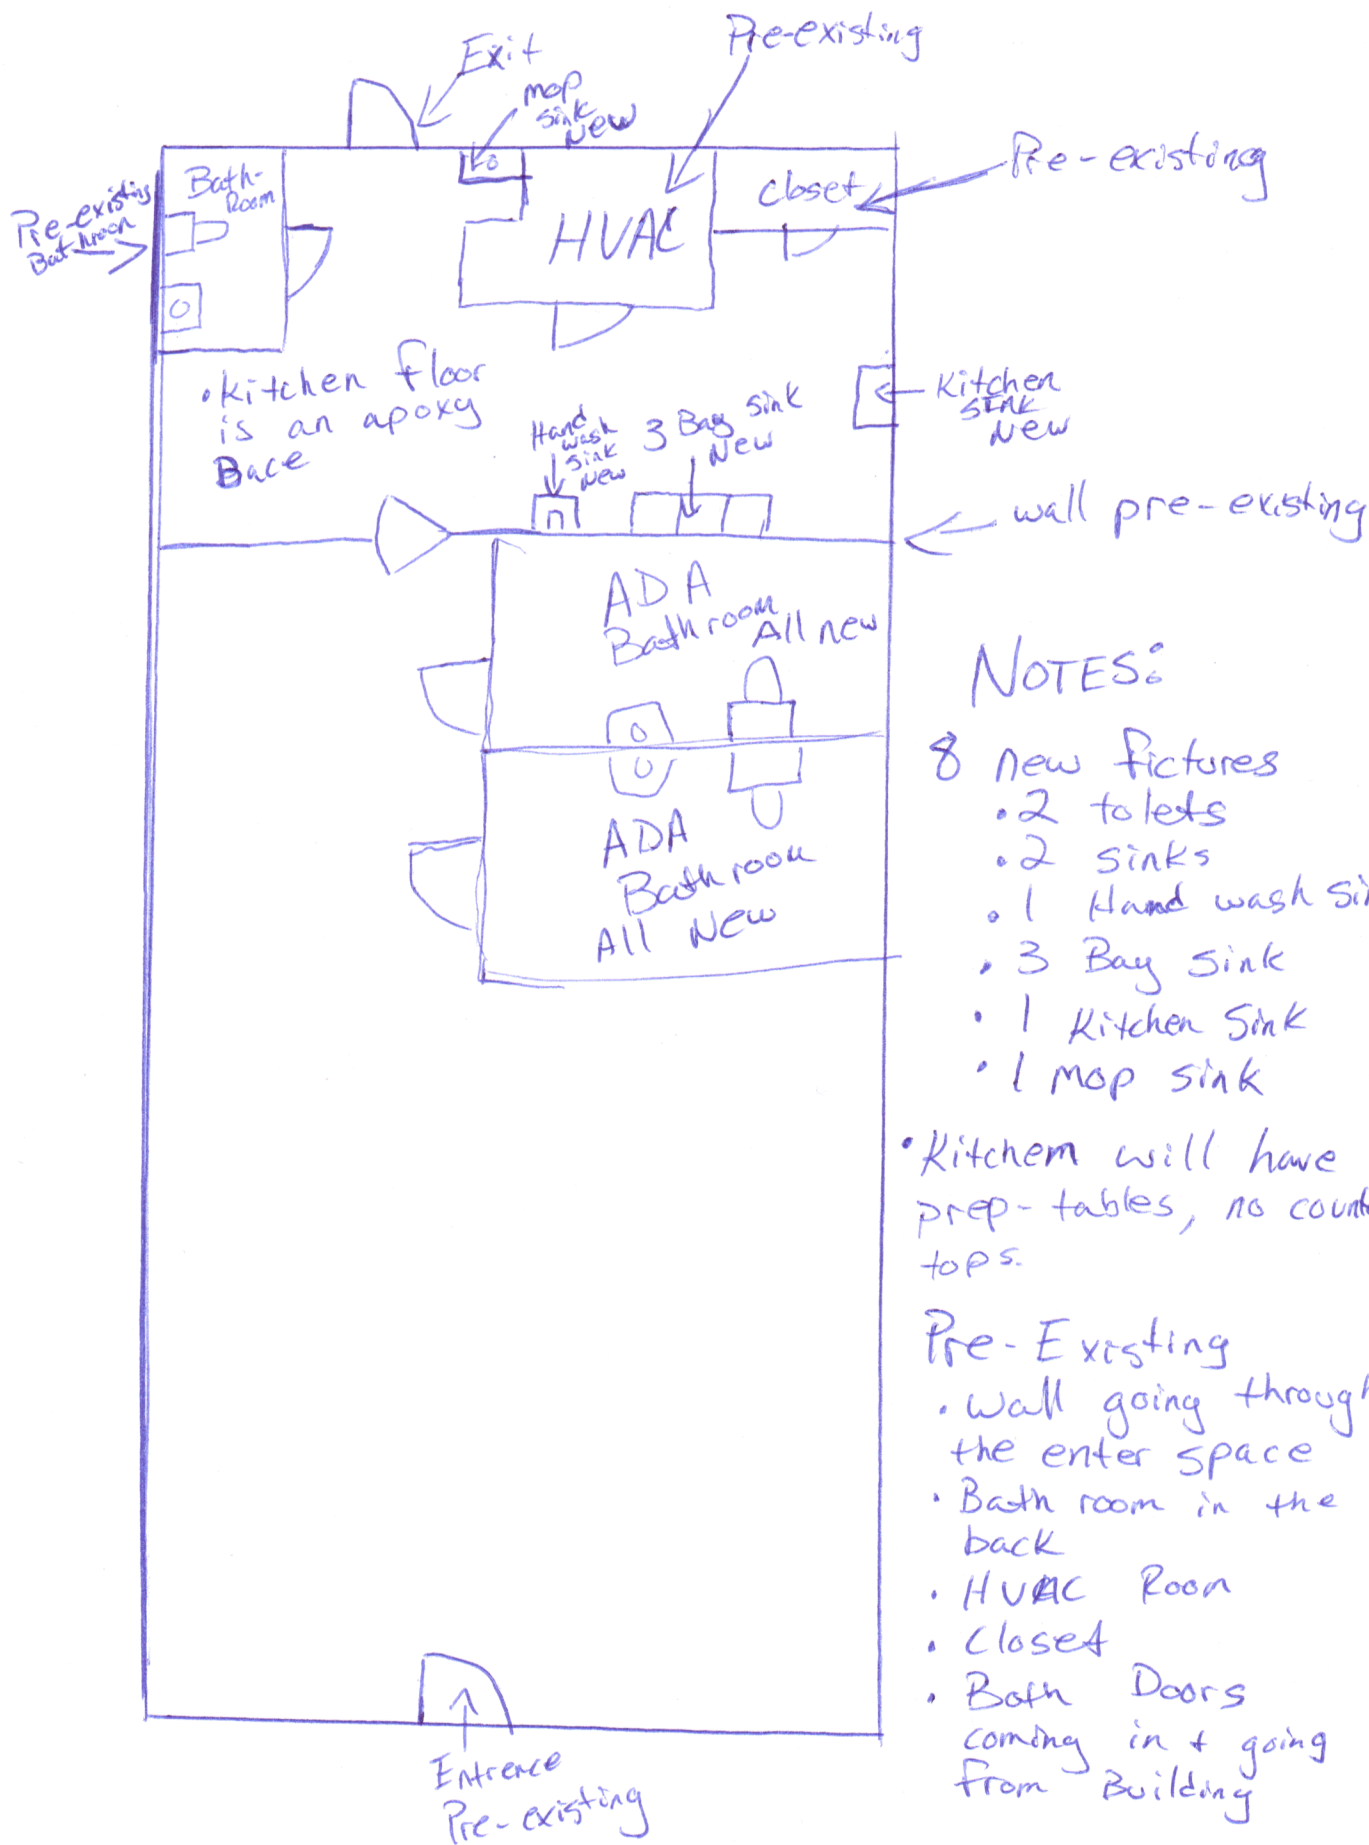 Exit
mop
sink
New
Pre-existing
Pre-existing
closet
Bath-
Room
Pre-existing
Bathroom
HVAC
• Kitchen floor
is an apoxy
Bace
Hand
wash
sink
New
3 Bay sink
New
Kitchen
sink
New
wall pre-existing
ADA
Bathroom
All new
ADA
Bathroom
All New
NOTES:
8 new fictures
• 2 tolets
• 2 sinks
• 1 Hand wash sin
• 3 Bay sink
• 1 Kitchen Sink
• 1 mop sink
• Kitchem will have
prep-tables, no count
tops.
Pre-Existing
• Wall going through
the enter space
• Bath room in the
back
• HVAC Room
• Closet
• Both Doors
coming in + going
from Building
Entrence
Pre-existing